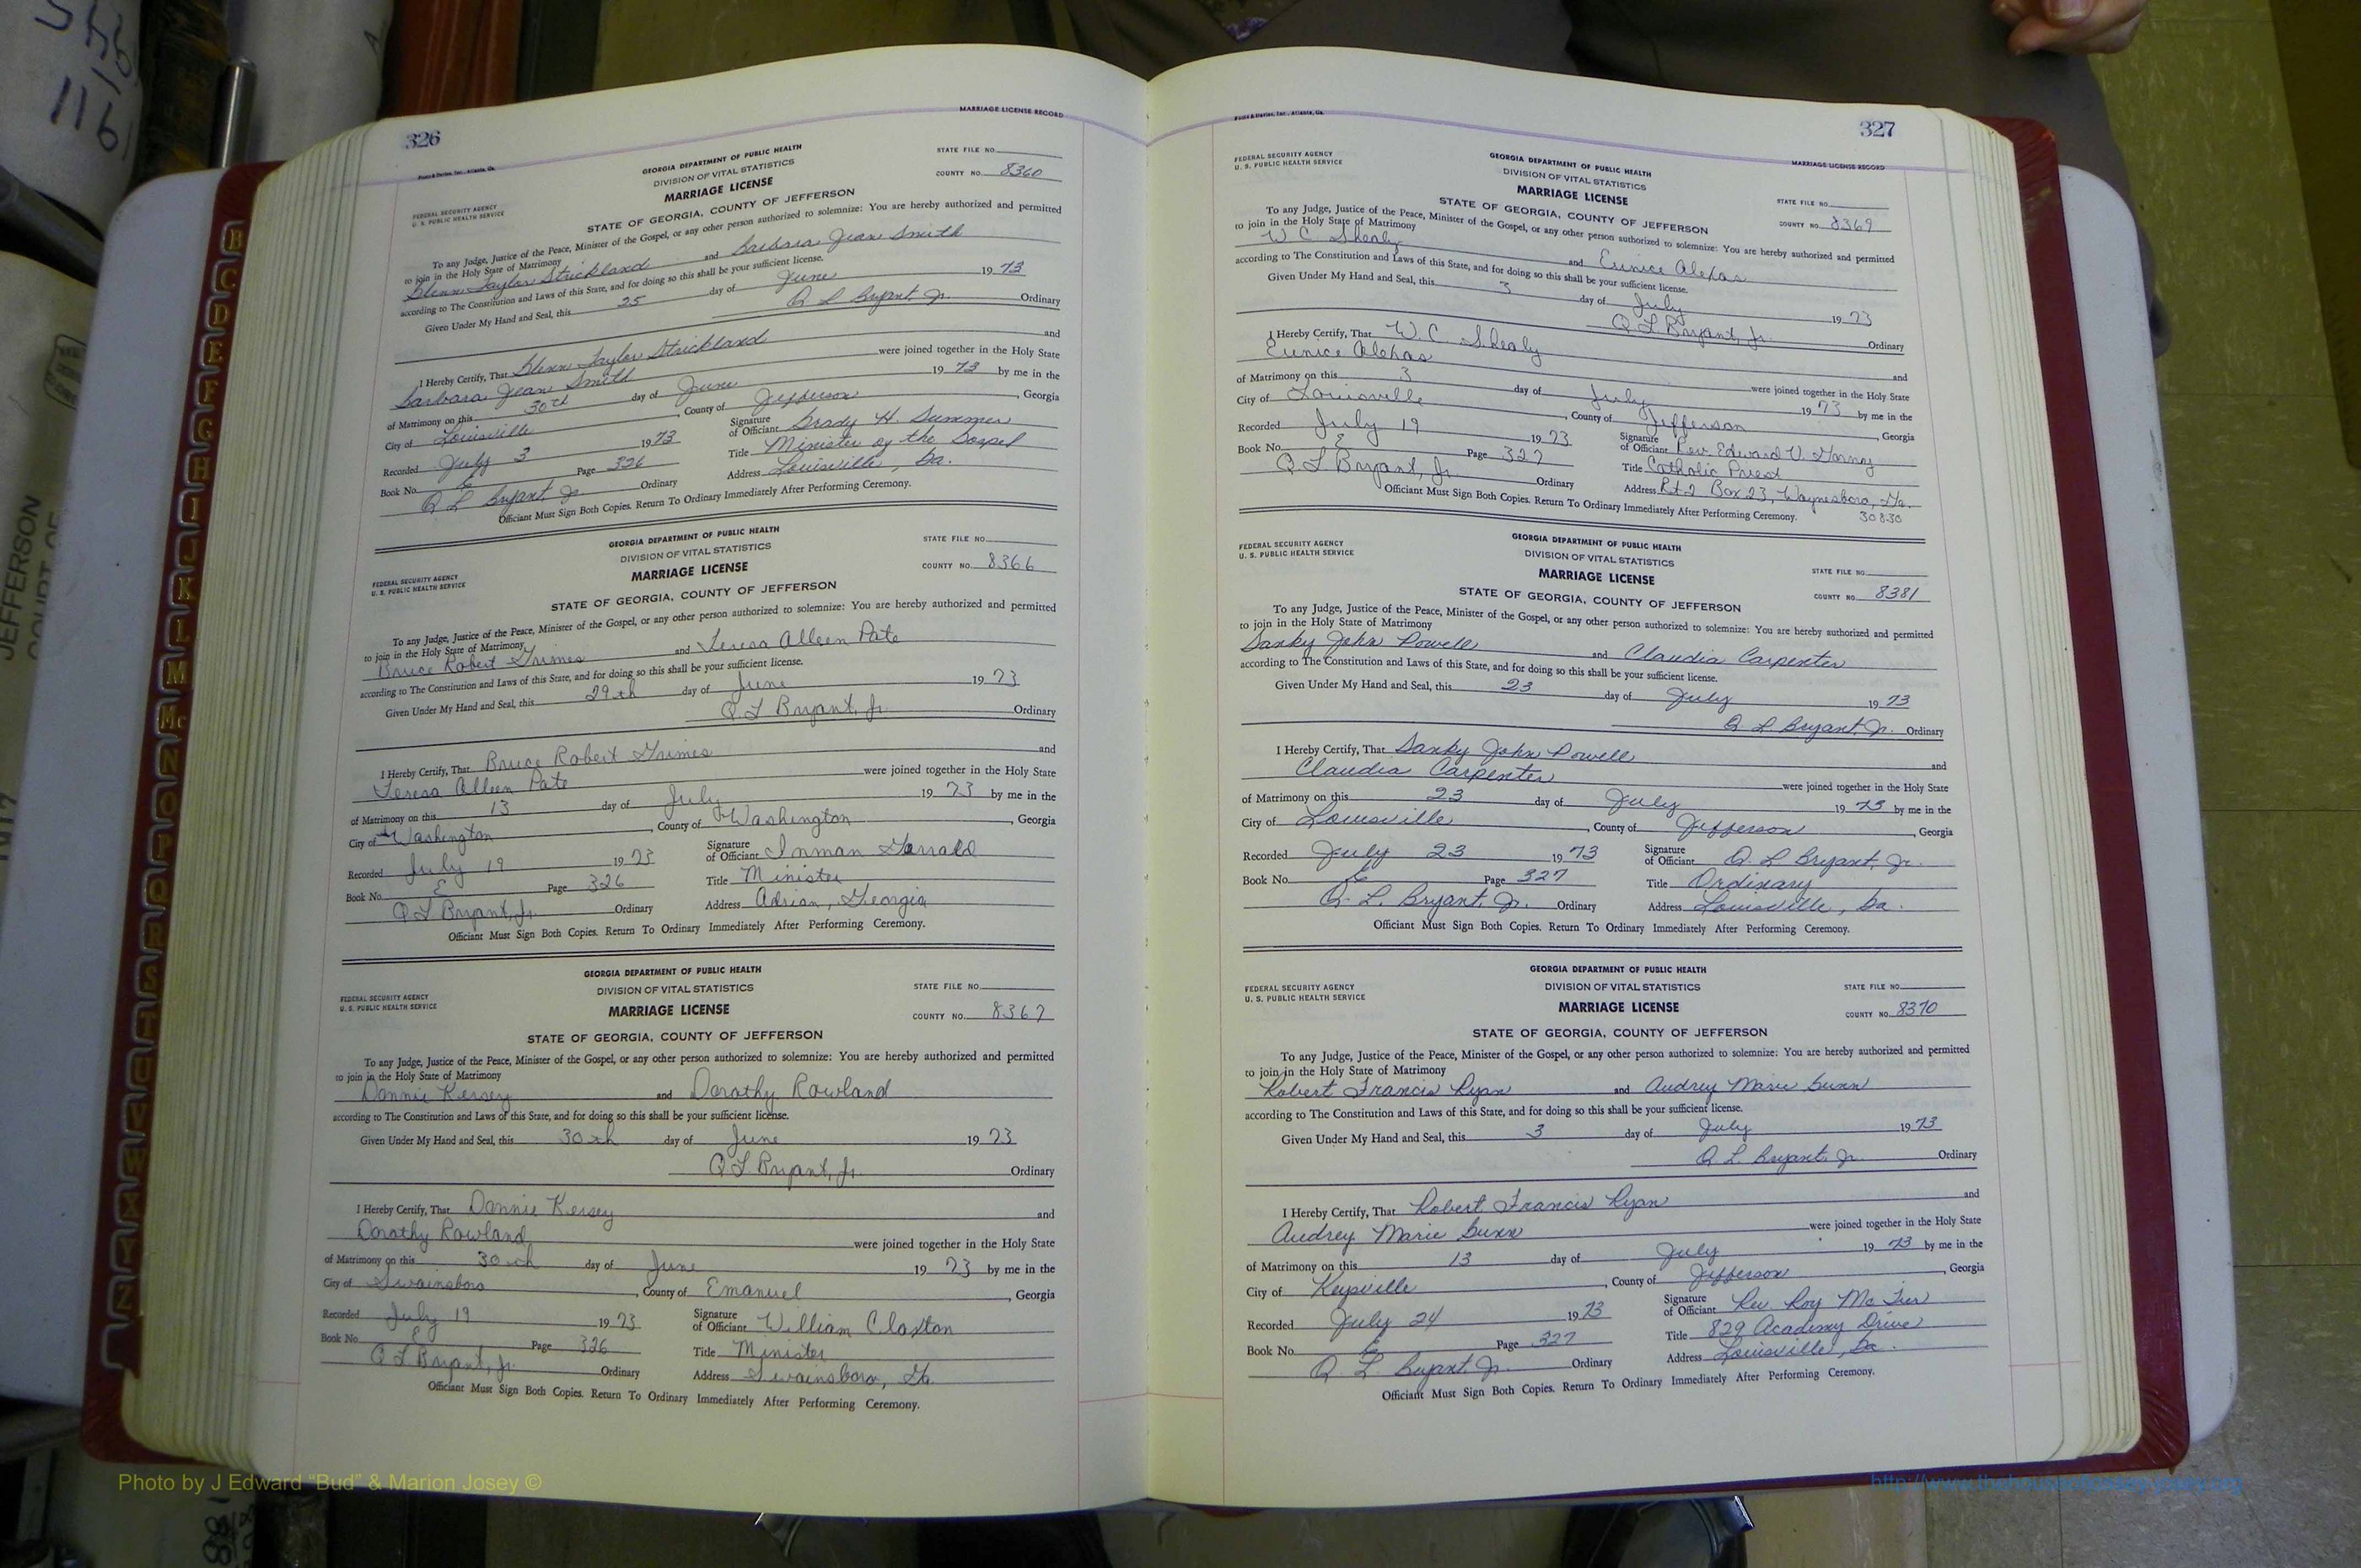 326
MARRIAGE LICENSE RECORD
Foote & Davies, Inc., Atlanta, Ga.
FEDERAL SECURITY AGENCY
U. S. PUBLIC HEALTH SERVICE
GEORGIA DEPARTMENT OF PUBLIC HEALTH
DIVISION OF VITAL STATISTICS
MARRIAGE LICENSE
STATE OF GEORGIA, COUNTY OF JEFFERSON
STATE FILE NO.
COUNTY NO. 8360
To any Judge, Justice of the Peace, Minister of the Gospel, or any other person authorized to solemnize: You are hereby authorized and permitted
to join in the Holy State of Matrimony
Glenn Taylor Strickland and Barbara Jean Smith
according to The Constitution and Laws of this State, and for doing so this shall be your sufficient license.
Given Under My Hand and Seal, this 25 day of June 1973
Q L Bryant, Jr. Ordinary
I Hereby Certify, That Glenn Taylor Strickland and
Barbara Jean Smith were joined together in the Holy State
of Matrimony on this 30th day of June 1973 by me in the
City of Louisville, County of Jefferson, Georgia
Recorded July 3 1973 Signature of Officiant Grady H. Summer
Book No. E Page 326 Title Minister of the Gospel
Q L Bryant Jr Ordinary Address Louisville, Ga.
Officiant Must Sign Both Copies. Return To Ordinary Immediately After Performing Ceremony.
FEDERAL SECURITY AGENCY
U. S. PUBLIC HEALTH SERVICE
GEORGIA DEPARTMENT OF PUBLIC HEALTH
DIVISION OF VITAL STATISTICS
MARRIAGE LICENSE
STATE OF GEORGIA, COUNTY OF JEFFERSON
STATE FILE NO.
COUNTY NO. 8366
To any Judge, Justice of the Peace, Minister of the Gospel, or any other person authorized to solemnize: You are hereby authorized and permitted
to join in the Holy State of Matrimony
Bruce Robert Grimes and Teresa Alleen Pate
according to The Constitution and Laws of this State, and for doing so this shall be your sufficient license.
Given Under My Hand and Seal, this 29th day of June 1973
Q L Bryant, Jr. Ordinary
I Hereby Certify, That Bruce Robert Grimes and
Teresa Alleen Pate were joined together in the Holy State
of Matrimony on this 13 day of July 1973 by me in the
City of Washington, County of Washington, Georgia
Recorded July 19 1973 Signature of Officiant Inman Gerrald
Book No. E Page 326 Title Minister
Q L Bryant, Jr. Ordinary Address Adrian, Georgia
Officiant Must Sign Both Copies. Return To Ordinary Immediately After Performing Ceremony.
FEDERAL SECURITY AGENCY
U. S. PUBLIC HEALTH SERVICE
GEORGIA DEPARTMENT OF PUBLIC HEALTH
DIVISION OF VITAL STATISTICS
MARRIAGE LICENSE
STATE OF GEORGIA, COUNTY OF JEFFERSON
STATE FILE NO.
COUNTY NO. 8367
To any Judge, Justice of the Peace, Minister of the Gospel, or any other person authorized to solemnize: You are hereby authorized and permitted
to join in the Holy State of Matrimony
Donnie Kersey and Dorothy Rowland
according to The Constitution and Laws of this State, and for doing so this shall be your sufficient license.
Given Under My Hand and Seal, this 30th day of June 1973
Q L Bryant, Jr. Ordinary
I Hereby Certify, That Donnie Kersey and
Dorothy Rowland were joined together in the Holy State
of Matrimony on this 30th day of June 1973 by me in the
City of Swainsboro, County of Emanuel, Georgia
Recorded July 19 1973 Signature of Officiant William Claxton
Book No. E Page 326 Title Minister
Q L Bryant, Jr. Ordinary Address Swainsboro, Ga.
Officiant Must Sign Both Copies. Return To Ordinary Immediately After Performing Ceremony.
327
Foote & Davies, Inc., Atlanta, Ga.
MARRIAGE LICENSE RECORD
FEDERAL SECURITY AGENCY
U. S. PUBLIC HEALTH SERVICE
GEORGIA DEPARTMENT OF PUBLIC HEALTH
DIVISION OF VITAL STATISTICS
MARRIAGE LICENSE
STATE OF GEORGIA, COUNTY OF JEFFERSON
STATE FILE NO.
COUNTY NO. 8369
To any Judge, Justice of the Peace, Minister of the Gospel, or any other person authorized to solemnize: You are hereby authorized and permitted
to join in the Holy State of Matrimony
W C Shealy and Eunice
according to The Constitution and Laws of this State, and for doing so this shall be your sufficient license.
Given Under My Hand and Seal, this 3 day of July 1973
Q L Bryant, Jr. Ordinary
I Hereby Certify, That W. C. Shealy and
Eunice were joined together in the Holy State
of Matrimony on this 3 day of July 1973 by me in the
City of Louisville, County of Jefferson, Georgia
Recorded July 19 1973 Signature of Officiant Rev. Edward V.
Book No. E Page 327 Title Catholic Priest
Q L Bryant, Jr. Ordinary Address Rt. 2 Box 23, Waynesboro, Ga. 30830
Officiant Must Sign Both Copies. Return To Ordinary Immediately After Performing Ceremony.
FEDERAL SECURITY AGENCY
U. S. PUBLIC HEALTH SERVICE
GEORGIA DEPARTMENT OF PUBLIC HEALTH
DIVISION OF VITAL STATISTICS
MARRIAGE LICENSE
STATE OF GEORGIA, COUNTY OF JEFFERSON
STATE FILE NO.
COUNTY NO. 8381
To any Judge, Justice of the Peace, Minister of the Gospel, or any other person authorized to solemnize: You are hereby authorized and permitted
to join in the Holy State of Matrimony
Sanky John Powell and Claudia Carpenter
according to The Constitution and Laws of this State, and for doing so this shall be your sufficient license.
Given Under My Hand and Seal, this 23 day of July 1973
Q L Bryant, Jr. Ordinary
I Hereby Certify, That Sanky John Powell and
Claudia Carpenter were joined together in the Holy State
of Matrimony on this 23 day of July 1973 by me in the
City of Louisville, County of Jefferson, Georgia
Recorded July 23 1973 Signature of Officiant Q. L Bryant, Jr.
Book No. E Page 327 Title Ordinary
Q. L. Bryant, Jr. Ordinary Address Louisville, Ga.
Officiant Must Sign Both Copies. Return To Ordinary Immediately After Performing Ceremony.
FEDERAL SECURITY AGENCY
U. S. PUBLIC HEALTH SERVICE
GEORGIA DEPARTMENT OF PUBLIC HEALTH
DIVISION OF VITAL STATISTICS
MARRIAGE LICENSE
STATE OF GEORGIA, COUNTY OF JEFFERSON
STATE FILE NO.
COUNTY NO. 8370
To any Judge, Justice of the Peace, Minister of the Gospel, or any other person authorized to solemnize: You are hereby authorized and permitted
to join in the Holy State of Matrimony
Robert Francis Ryan and Audrey Marie Gunn
according to The Constitution and Laws of this State, and for doing so this shall be your sufficient license.
Given Under My Hand and Seal, this 3 day of July 1973
Q. L. Bryant, Jr. Ordinary
I Hereby Certify, That Robert Francis Ryan and
Audrey Marie Gunn were joined together in the Holy State
of Matrimony on this 13 day of July 1973 by me in the
City of Keysville, County of Jefferson, Georgia
Recorded July 24 1973 Signature of Officiant Rev. Roy McTier
Book No. E Page 327 Title 829 Academy Drive
Q. L. Bryant, Jr. Ordinary Address Louisville, Ga.
Officiant Must Sign Both Copies. Return To Ordinary Immediately After Performing Ceremony.
B
C
D
E
F
G
H
I
J
K
L
M
Mc
N
O
P
Q
R
S
T
U
V
W
X
Y
Z
JEFFERSON
COURT OF
Photo by J Edward “Bud” & Marion Josey ©